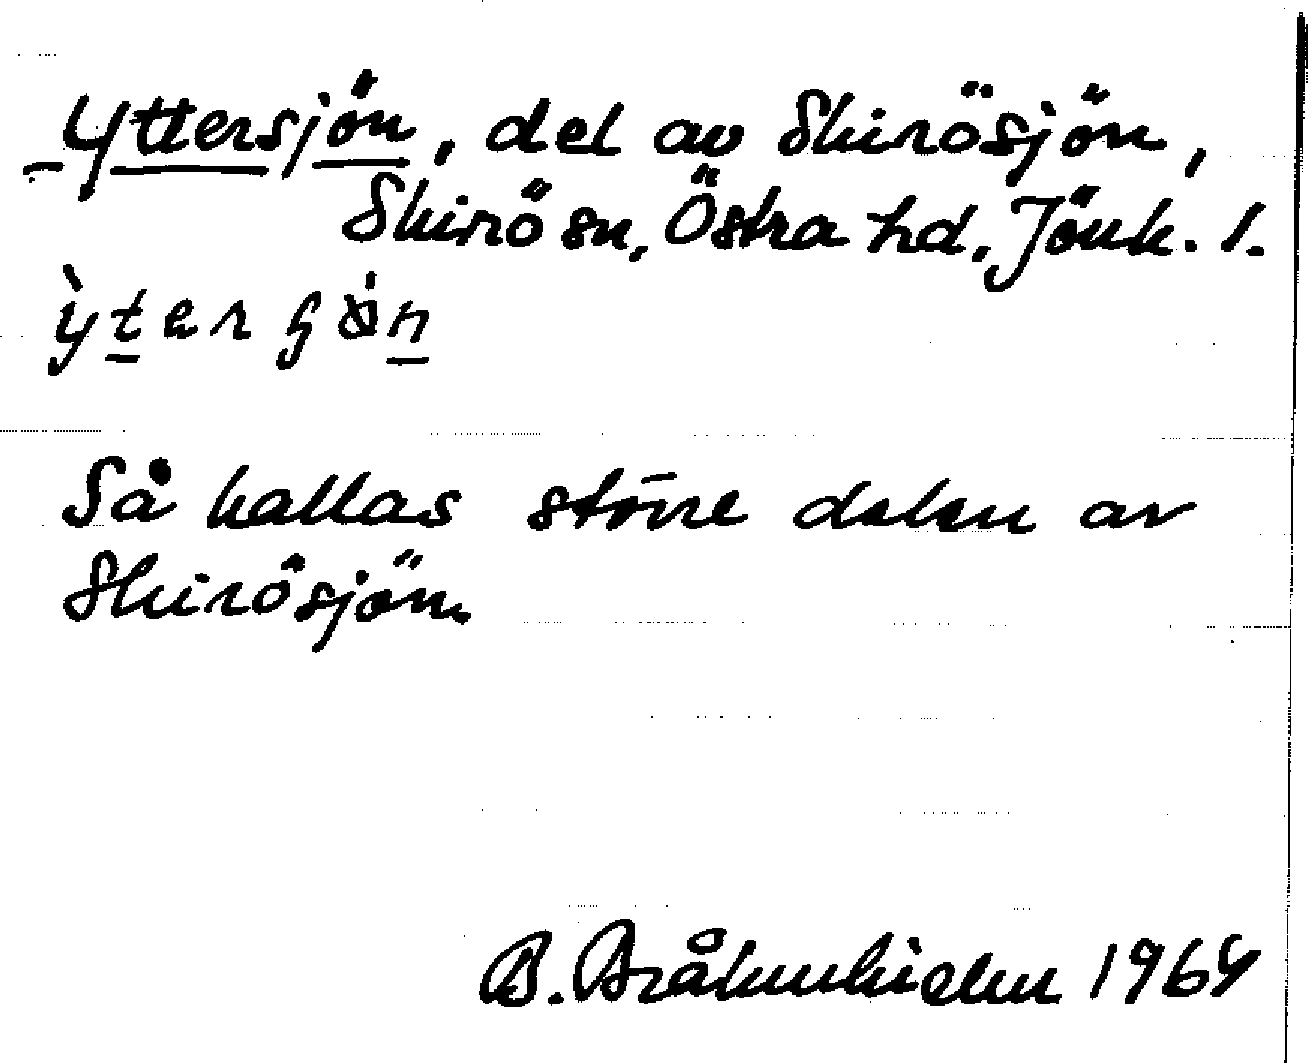 Yttersjön, del av Skirösjön,
Skirö sn, Östra hd, Jönk. l.
Så kallas större delen av
Skirösjön.
B. 1964